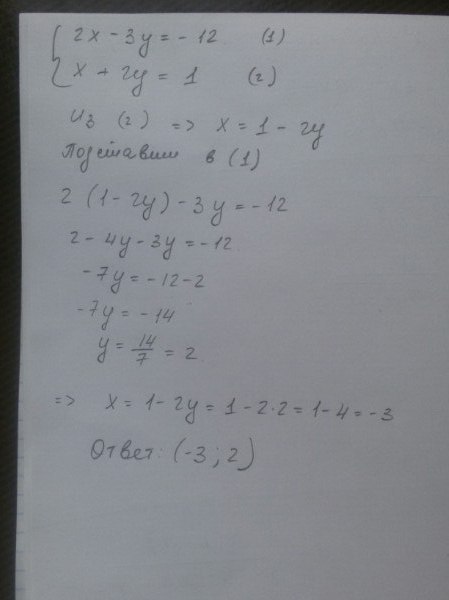 { 2x - 3y = -12 (1)
x + 2y = 1 (2)
Из (2) => x = 1 - 2y
Подставим в (1)
2 (1 - 2y) - 3y = -12
2 - 4y - 3y = -12
-7y = -12 - 2
-7y = -14
y = 14/7 = 2
=> x = 1 - 2y = 1 - 2·2 = 1 - 4 = -3
Ответ: (-3; 2)